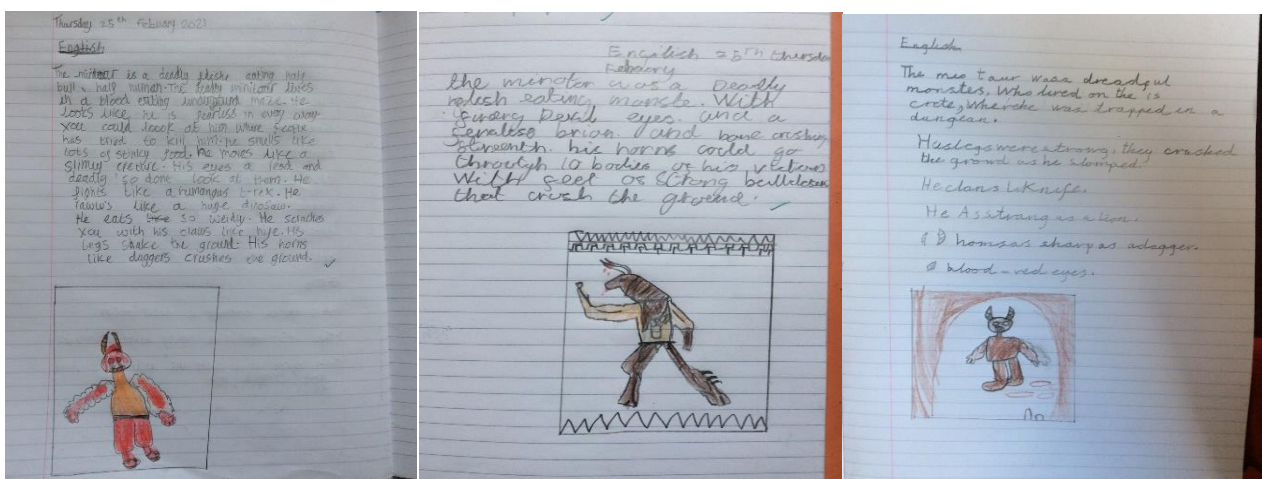 Thursday 25th February 2021
English
The minitaur is a deadly flesh eating half
bull, half human. The deadly minitaur lives
in a blood eating underground maze. He
looks like he is fearless in every
you could loock at him where
has tried to kill him. he smells like
lots of stinky food. he moves like a
slimey creture. His eyes a and
deadly so dont look at them. He
fights like a humangus t-rex. He
like a huge
He eats so weirdly. He
you with his claws like
shake the ground. His horns
like daggers crushes the ground.
English 25TH thursday
Febuary
the minotor was a Deadly
flesh eating monste. With
Devil eyes. and a
brian. and bone crushing
his horns could go
through 10 bodies of his
With feet as strong
that crush the ground.
English
The mino taur was a dreadful
monsters. Who lived on the is
crete, Where he was trapped in a
dungean.
His legs were strong, they crushed
the grond as he stomped.
He claws like knife.
He As strong as a lion.
horns as sharp as a dagger.
blood-red eyes.